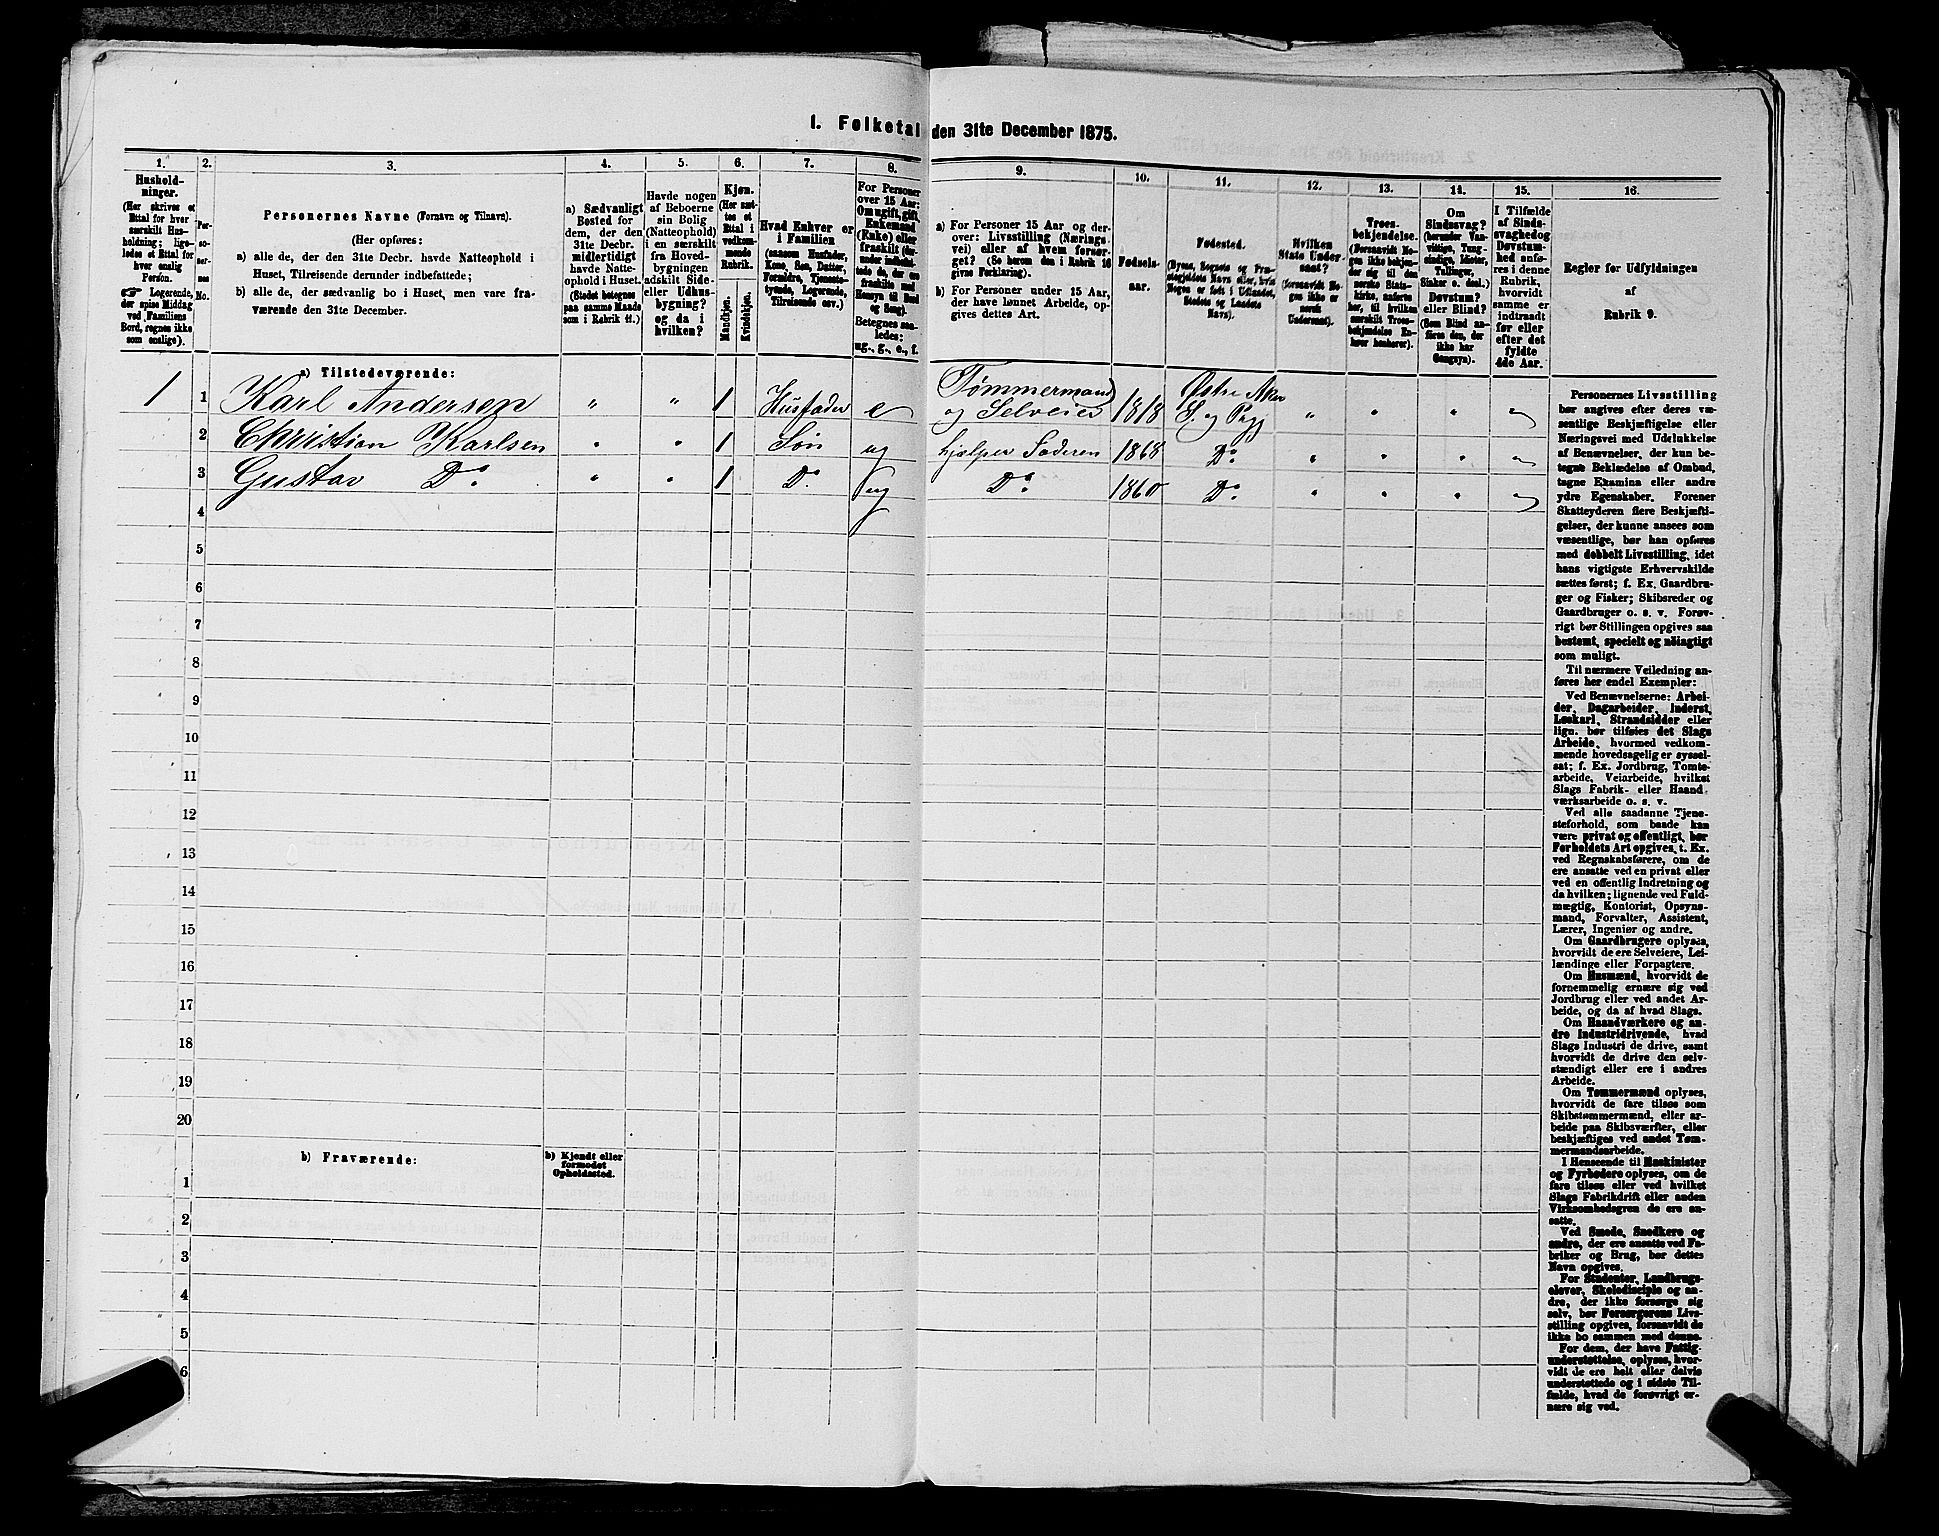 1. Folketal den 31te December 1875.
1.
2.
3.
4.
5.
6.
7.
8.
9.
10.
11.
12.
13.
14.
15.
16.
Hushold-
ninger.
(Her skrives et
Ettal for hver
særskilt Hus-
holdning; lige-
ledes et Ettal for
hver enslig
Person.
☞ Logerende,
der spise Middag
ved Familiens
Bord, regnes ikke
som enslige).
Per-
so-
ner-
nes
No.
Personernes Navne (Fornavn og Tilnavn).
(Her opføres:
a) alle de, der den 31te Decbr. havde Natteophold i
Huset, Tilreisende derunder indbefattede;
b) alle de, der sædvanlig bo i Huset, men vare fra-
værende den 31te December.
a) Sædvanligt
Bosted for
dem, der den
31te Decbr.
midlertidigt
havde Natte-
ophold i Huset.
(Stedet betegnes
paa samme Maade
som i Rubrik 11.)
Havde nogen
af Beboerne
sin Bolig
(Natteophold)
i en særskilt
fra Hoved-
bygningen
adskilt Side-
eller Udhus-
bygning?
og da i
hvilken?
Kjøn.
(Her sæt-
tes et
Ettal i
vedkom-
mende
Rubrik.
Mandkjøn.
Kvindekjøn.
Hvad Enhver er
i Familien
(saasom Husfader,
Kone, Søn, Datter,
Forældre, Tjeneste-
tyende, Logerende,
Tilreisende osv.)
For Personer
over 15 Aar:
Om ugift, gift,
Enkemand
(Enke) eller
fraskilt (der-
under indbefat-
tede de, der ere
fraskilte med
Hensyn til Bord
og Seng).
Betegnes saa-
ledes:
ug., g., e., f.
a) For Personer 15 Aar og der-
over: Livsstilling (Nærings-
vei) eller af hvem forsør-
get? (Se herom den i Rubrik 16
givne Forklaring).
b) For Personer under 15 Aar,
der have lønnet Arbeide, op-
gives dettes Art.
Fødsels-
aar.
Fødested.
(Byens, Sognets og Præ-
stegjeldets Navn eller, hvis
Nogen er født i Udlandet,
Stedets og Landets
Navn).
Hvilken
Stats Under-
saat?
(forsaavidt No-
gen ikke er
norsk
Undersaat).
Troes-
bekjendelse.
(Forsaavidt No-
gen ikke bekjen-
der sig til den
norske Stats-
kirke, anføres
her, til hvilken
særskilt Troes-
bekjendelse En-
hver henhører).
Om
Sindssvag?
(herunder Van-
vittige, Tung-
sindige, Idioter,
Tullinger,
Sinker o. desl.)
Døvstum?
eller Blind?
(Som Blind an-
føres den, der
ikke har
Gangsyn).
I Tilfælde
af Sinds-
svaghed og
Døvstum-
hed anfø-
res i denne
Rubrik,
hvorvidt
samme er
indtraadt
før eller
efter det
fyldte
4de Aar.
Regler for Udfyldningen
af
Rubrik 9.
a) Tilstedeværende:
1 1 Karl Andersen " " 1 Husfader e Tømmermand og Selveier 1818 Østre Aker S. og Prgj " " " "
2 Christian Karlsen " " 1 Søn ug hjelper Faderen 1868 Do. " " " "
3 Gustav Do. " " 1 Do. ug Do. 1860 Do. " " " "
4
5
6
7
8
9
10
11
12
13
14
15
16
17
18
19
20
b) Fraværende:
b) Kjendt eller
formodet
Opholdssted.
1
2
3
4
5
6
Personernes Livsstilling
bør angives efter deres væ-
sentlige Beskjæftigelse eller
Næringsvei med Udelukkelse
af Benævnelser, der kun be-
tegne Beklædelse af Ombud,
tagne Examina eller andre
ydre Egenskaber. Forener
Skatteyderen flere Beskjæfti-
gelser, der kunne ansees som
væsentlige, bør han opføres
med dobbelt Livsstilling, idet
hans vigtigste Erhvervskilde
sættes først; f. Ex. Gaardbru-
ger og Fisker; Skibsreder og
Gaardbruger o. s. v. Forøv-
rigt bør Stillingen opgives saa
bestemt, specielt og nøiagtigt
som muligt.
Til nærmere Veiledning an-
føres her endel Exempler:
Ved Benævnelserne: Arbei-
der, Dagarbeider, Inderst,
Løskarl, Strandsidder eller
lign. bør tilføies det Slags
Arbeide, hvormed vedkom-
mende hovedsagelig er syssel-
sat; f. Ex. Jordbrug, Tomte-
arbeide, Veiarbeide, hvilket
Slags Fabrik- eller Haand-
værksarbeide o. s. v.
Ved alle saadanne Tjene-
steforhold, som baade kan
være privat og offentligt, bør
Forholdets Art opgives, t. Ex.
ved Regnskabsførere, om de
ere ansatte ved en privat eller
ved en offentlig Indretning og
da hvilken; lignende ved Fuld-
mægtig, Kontorist, Opsyns-
mand, Forvalter, Assistent,
Lærer, Ingeniør og andre.
Om Gaardbrugere oplyses,
hvorvidt de ere Selveiere, Lei-
lændinge eller Forpagtere.
Om Husmænd, hvorvidt de
fornemmelig ernære sig ved
Jordbrug eller ved andet Ar-
beide, og da af hvad Slags.
Om Haandværkere og an-
dre Industridrivende, hvad
Slags Industri de drive, samt
hvorvidt de drive den selv-
stændigt eller ere i andres
Arbeide.
Om Tømmermænd oplyses,
hvorvidt de fare tilsøs som
Skibstømmermænd, eller ar-
beide paa Skibsværfter, eller
beskjæftiges ved andet Tøm-
mermandsarbeide.
I Henseende til Maskinister
og Fyrbødere oplyses, om de
fare tilsøs eller ved hvilket
Slags Fabrikdrift eller anden
Virksomhedsgren de ere an-
satte.
Ved Smede, Snedkere og
andre, der ere ansatte ved Fa-
briker og Brug, bør dettes
Navn opgives.
For Studenter, Landbrugs-
elever, Skoledisciple og an-
dre, der ikke forsørge sig
selv, bør Forsørgerens Livs-
stilling opgives, forsaavidt de
ikke bo sammen med denne.
For dem, der have Fattig-
understøttelse, oplyses, hvor-
vidt de ere helt eller delvis
understøttede og i sidste Til-
fælde, hvad de forøvrigt er-
nære sig ved.